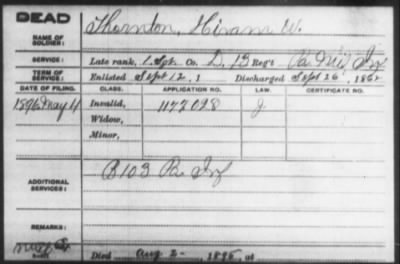 DEAD
NAME OF SOLDIER: Thornton, Hiram W.
SERVICE: Late rank, 1 Sgt. Co. D, 13 Reg't Pa Mil Inf
TERM OF SERVICE: Enlisted Sept 12, 1 Discharged Sept 26, 1862
DATE OF FILING. CLASS. APPLICATION NO. LAW. CERTIFICATE NO.
1896 May 4 Invalid, 1177098 J
Widow,
Minor,
ADDITIONAL SERVICES: B 103 Pa Inf
REMARKS:
Died Aug 2 -, 1895, at